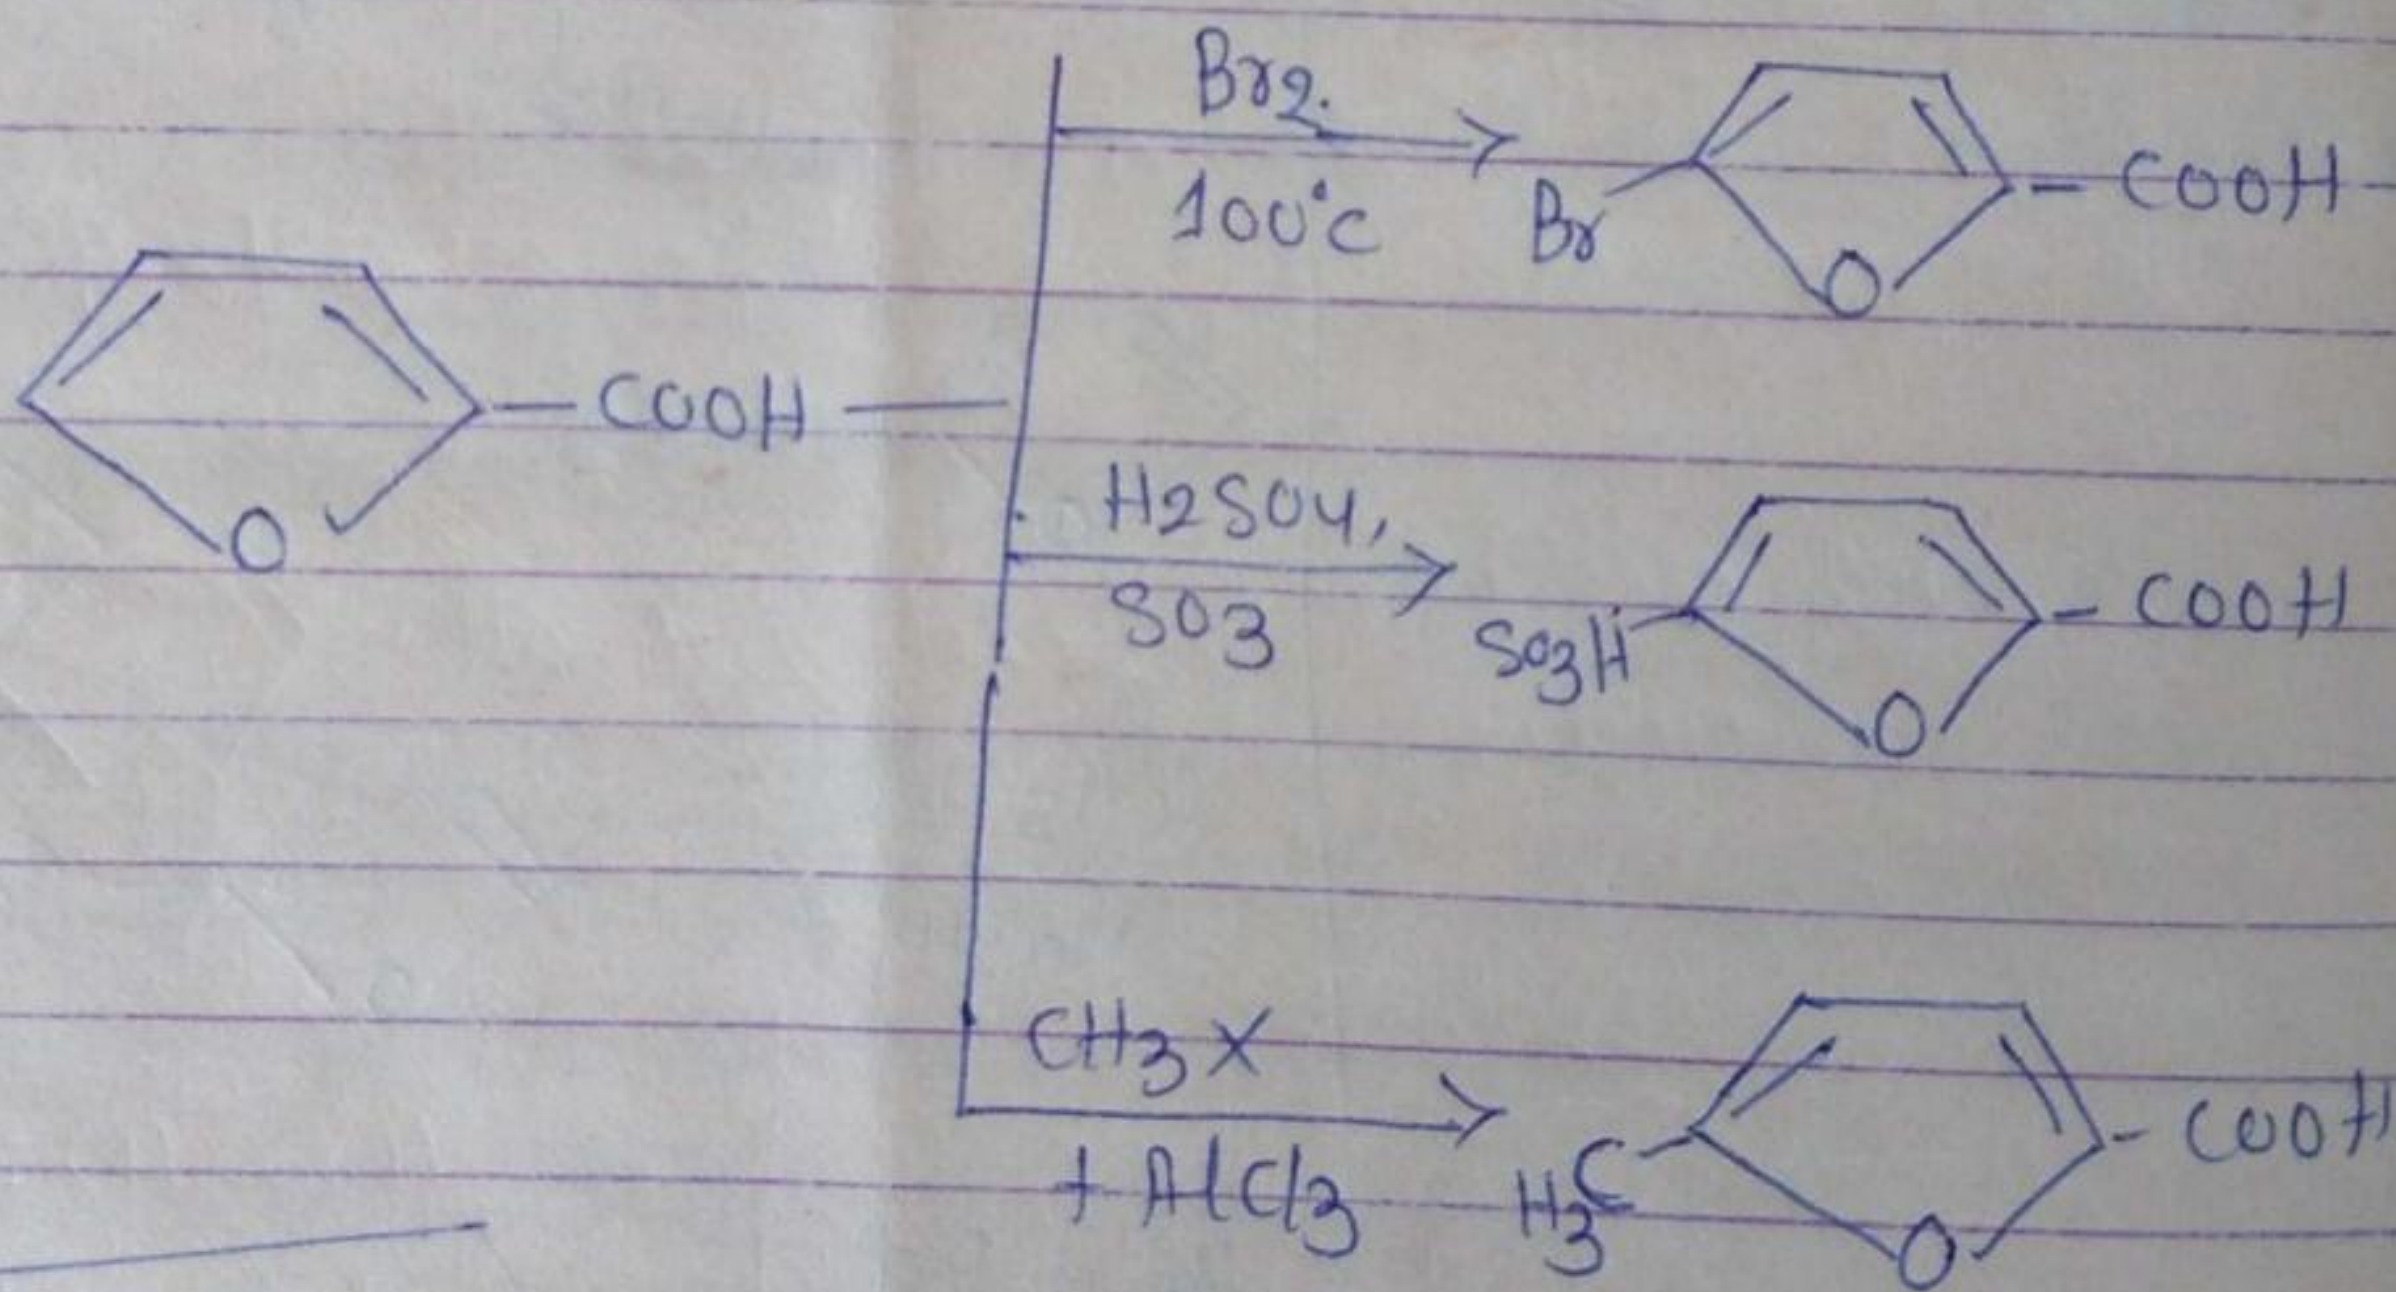 Br2.
100°C
Br
O
COOH
COOH
O
H2SO4,
SO3
SO3H
O
COOH
CH3X
+ AlCl3
H3C
O
COOH